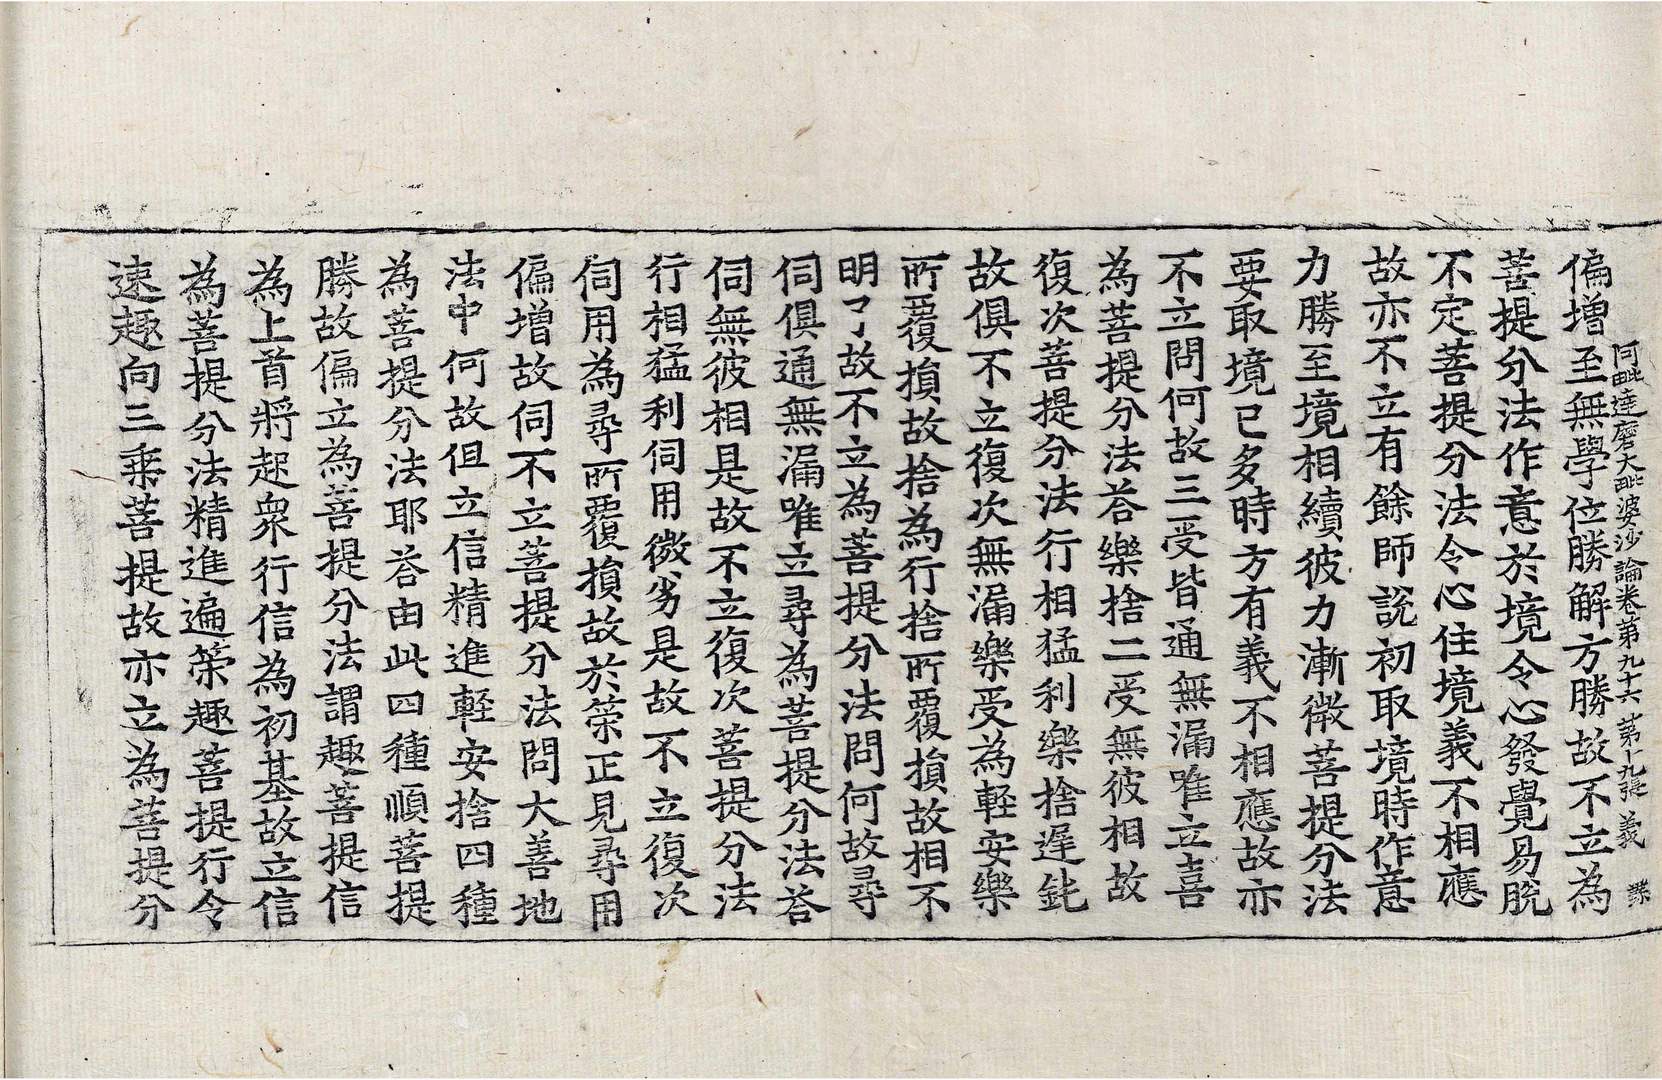 阿毗達磨大毗婆沙論卷第九十六 第十九張 義
偏增至無學位勝解方勝故不立為
菩提分法作意於境令心發覺易脫
不定菩提分法令心住境義不相應
故亦不立有餘師說初取境時作意
力勝至境相續彼力漸微菩提分法
要取境已多時方有義不相應故亦
不立問何故三受皆通無漏唯立喜
為菩提分法荅樂捨二受無彼相故
復次菩提分法行相猛利樂捨遲鈍
故俱不立復次無漏樂受為輕安樂
所覆損故捨為行捨所覆損故相不
明了故不立為菩提分法問何故尋
伺俱通無漏唯立尋為菩提分法荅
伺無彼相是故不立復次菩提分法
行相猛利伺用微劣是故不立復次
伺用為尋所覆損故於策正見尋用
偏增故伺不立菩提分法問大善地
法中何故但立信精進輕安捨四種
為菩提分法耶荅由此四種順菩提
勝故偏立為菩提分法謂趣菩提信
為上首將起衆行信為初基故立信
為菩提分法精進遍策趣菩提行令
速趣向三乘菩提故亦立為菩提分